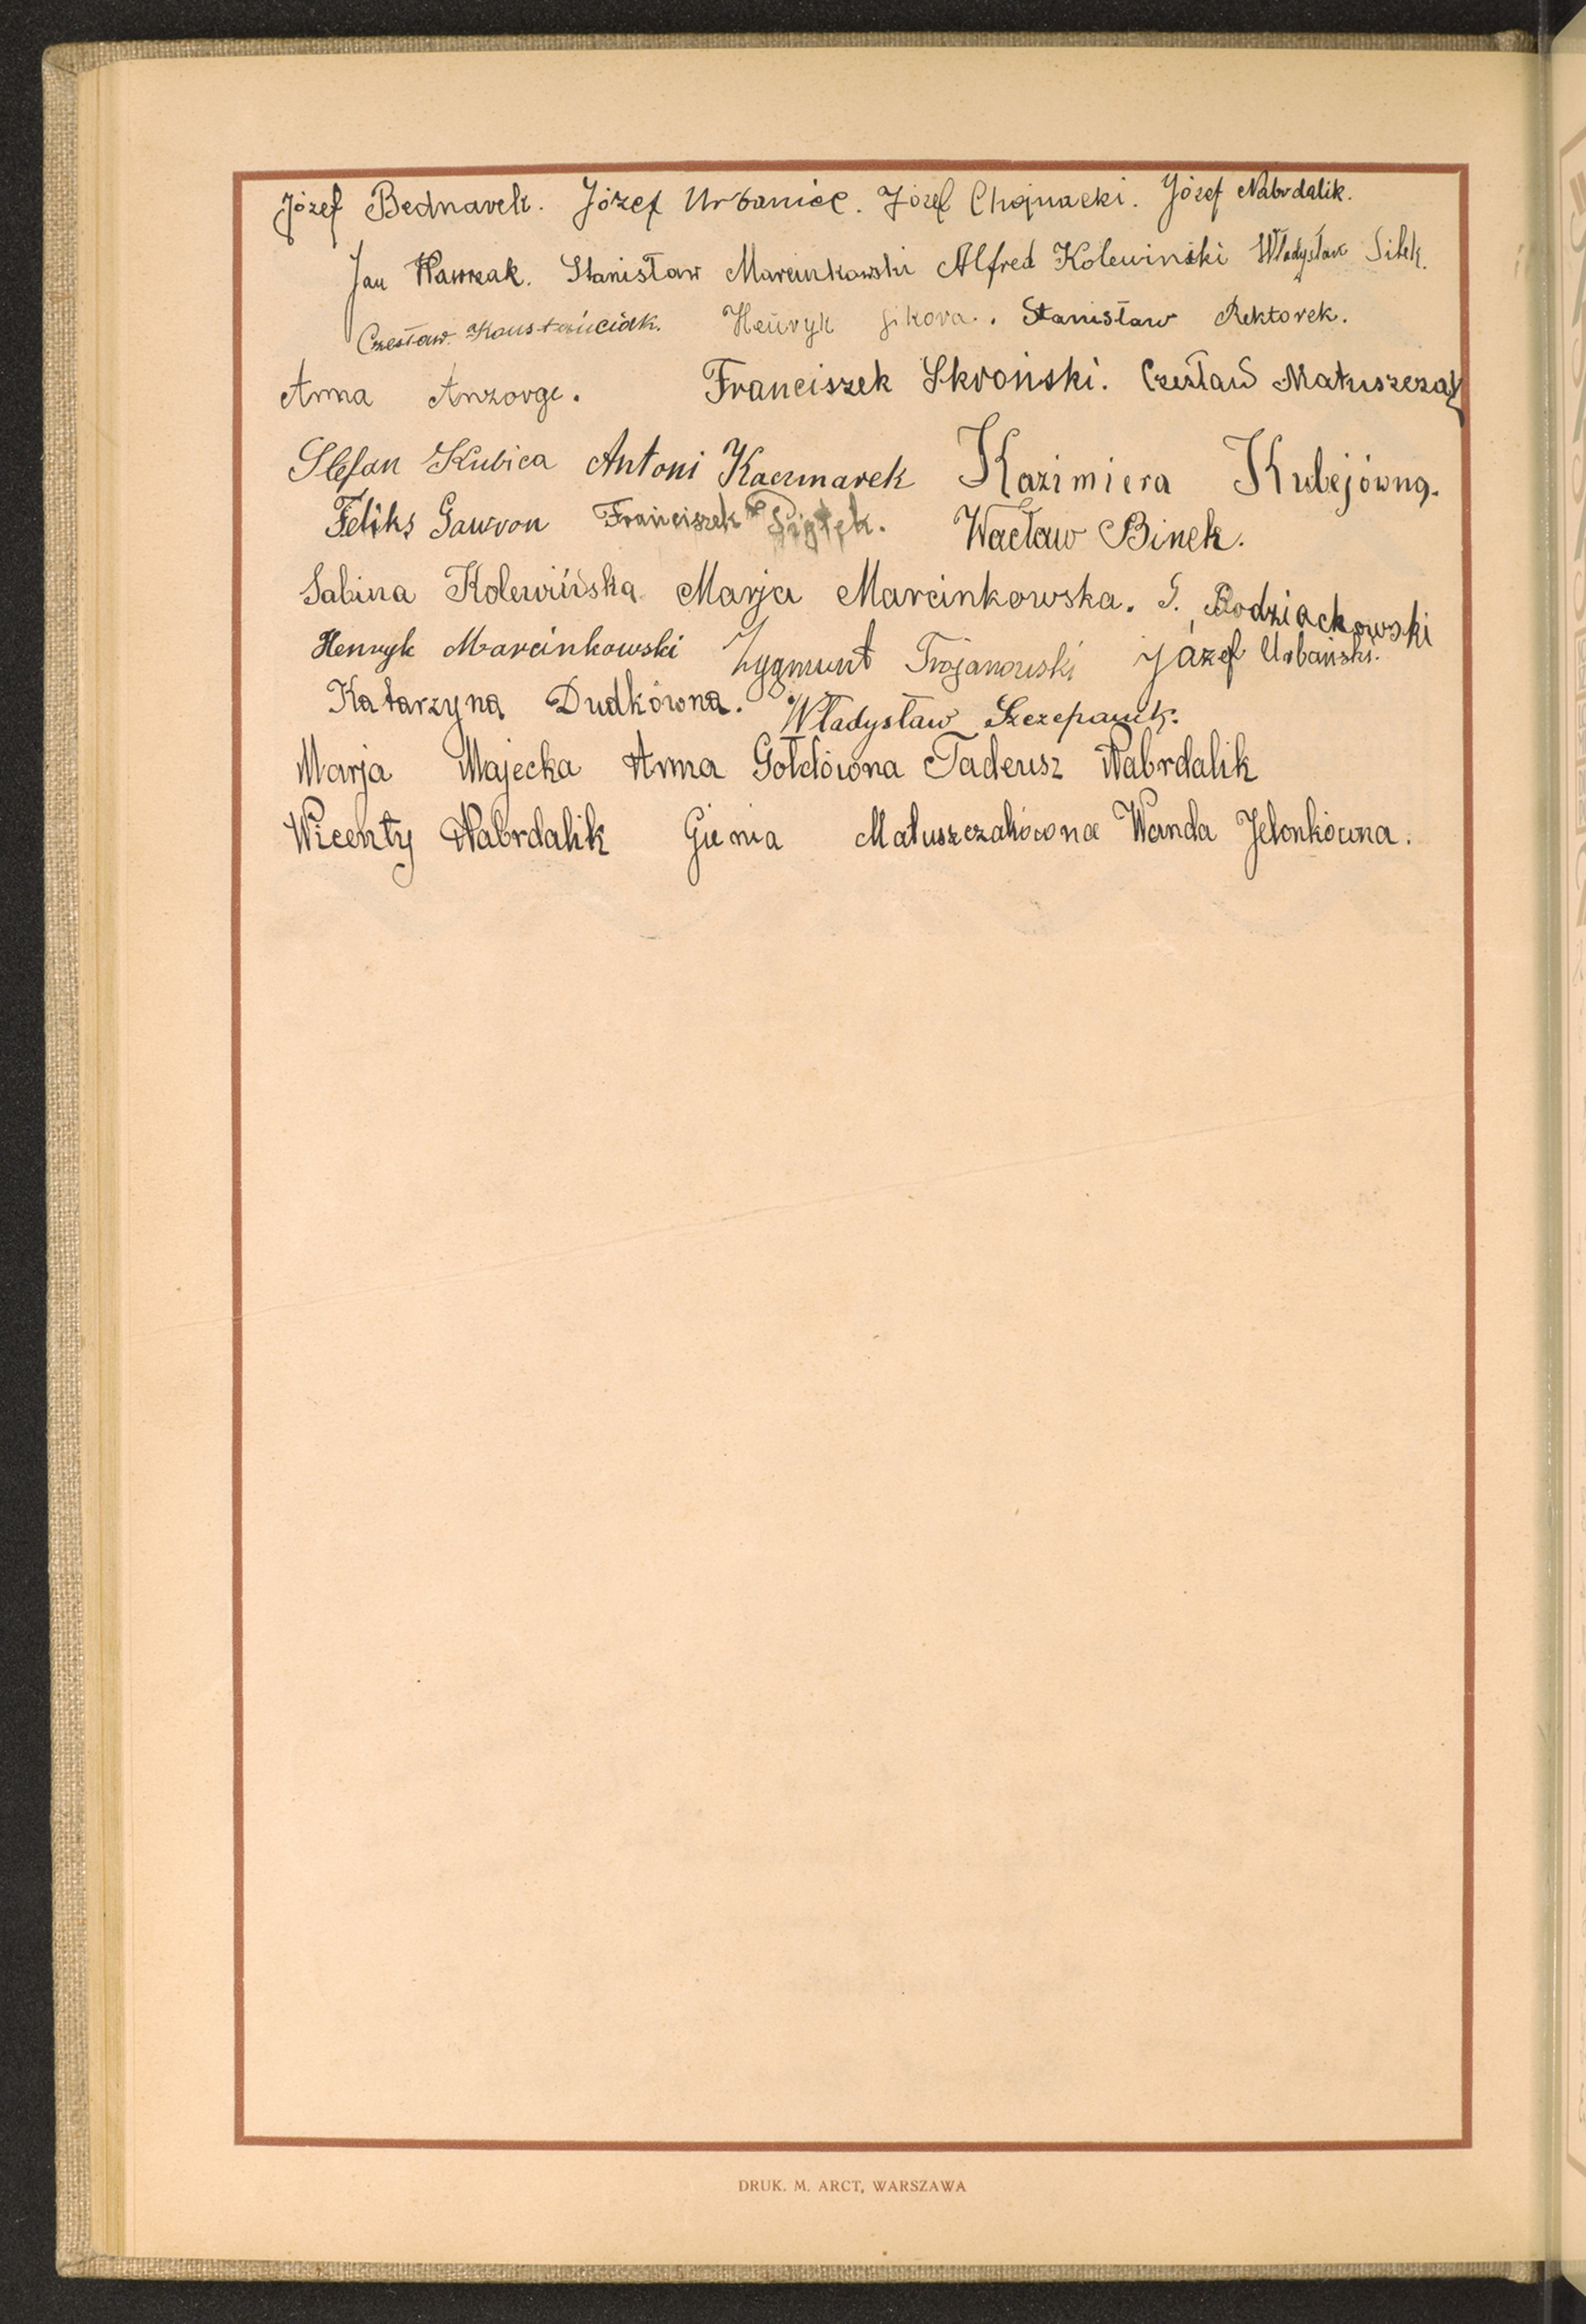 Józef Bednarek. Józef Urbaniec. Józef Chojnacki. Józef Nabrdalik.
Jan Stanisław Marcinkowski Alfred Kolewiński Władysław Sitek.
Czesław Konstańciak. Henryk Sikora. Stanisław Rektorek.
Anna Anzorge. Franciszek Skroński. Czesław Matuszczak
Stefan Kubica Antoni Kaczmarek Kazimiera Kubejówna.
Feliks Gawron Franciszek Piątek. Wacław Binek.
Sabina Kolewińska Marja Marcinkowska. S. Rodziackowski
Henryk Marcinkowski Zygmunt Trojanowski Józef Urbański.
Katarzyna Dudkówna. Władysław Szczepanik.
Marja Majecka Anna Gołdówna Tadeusz Nabrdalik
Wicenty Nabrdalik Gienia Matuszczakówna Wanda Jelonkówna.
DRUK. M. ARCT, WARSZAWA